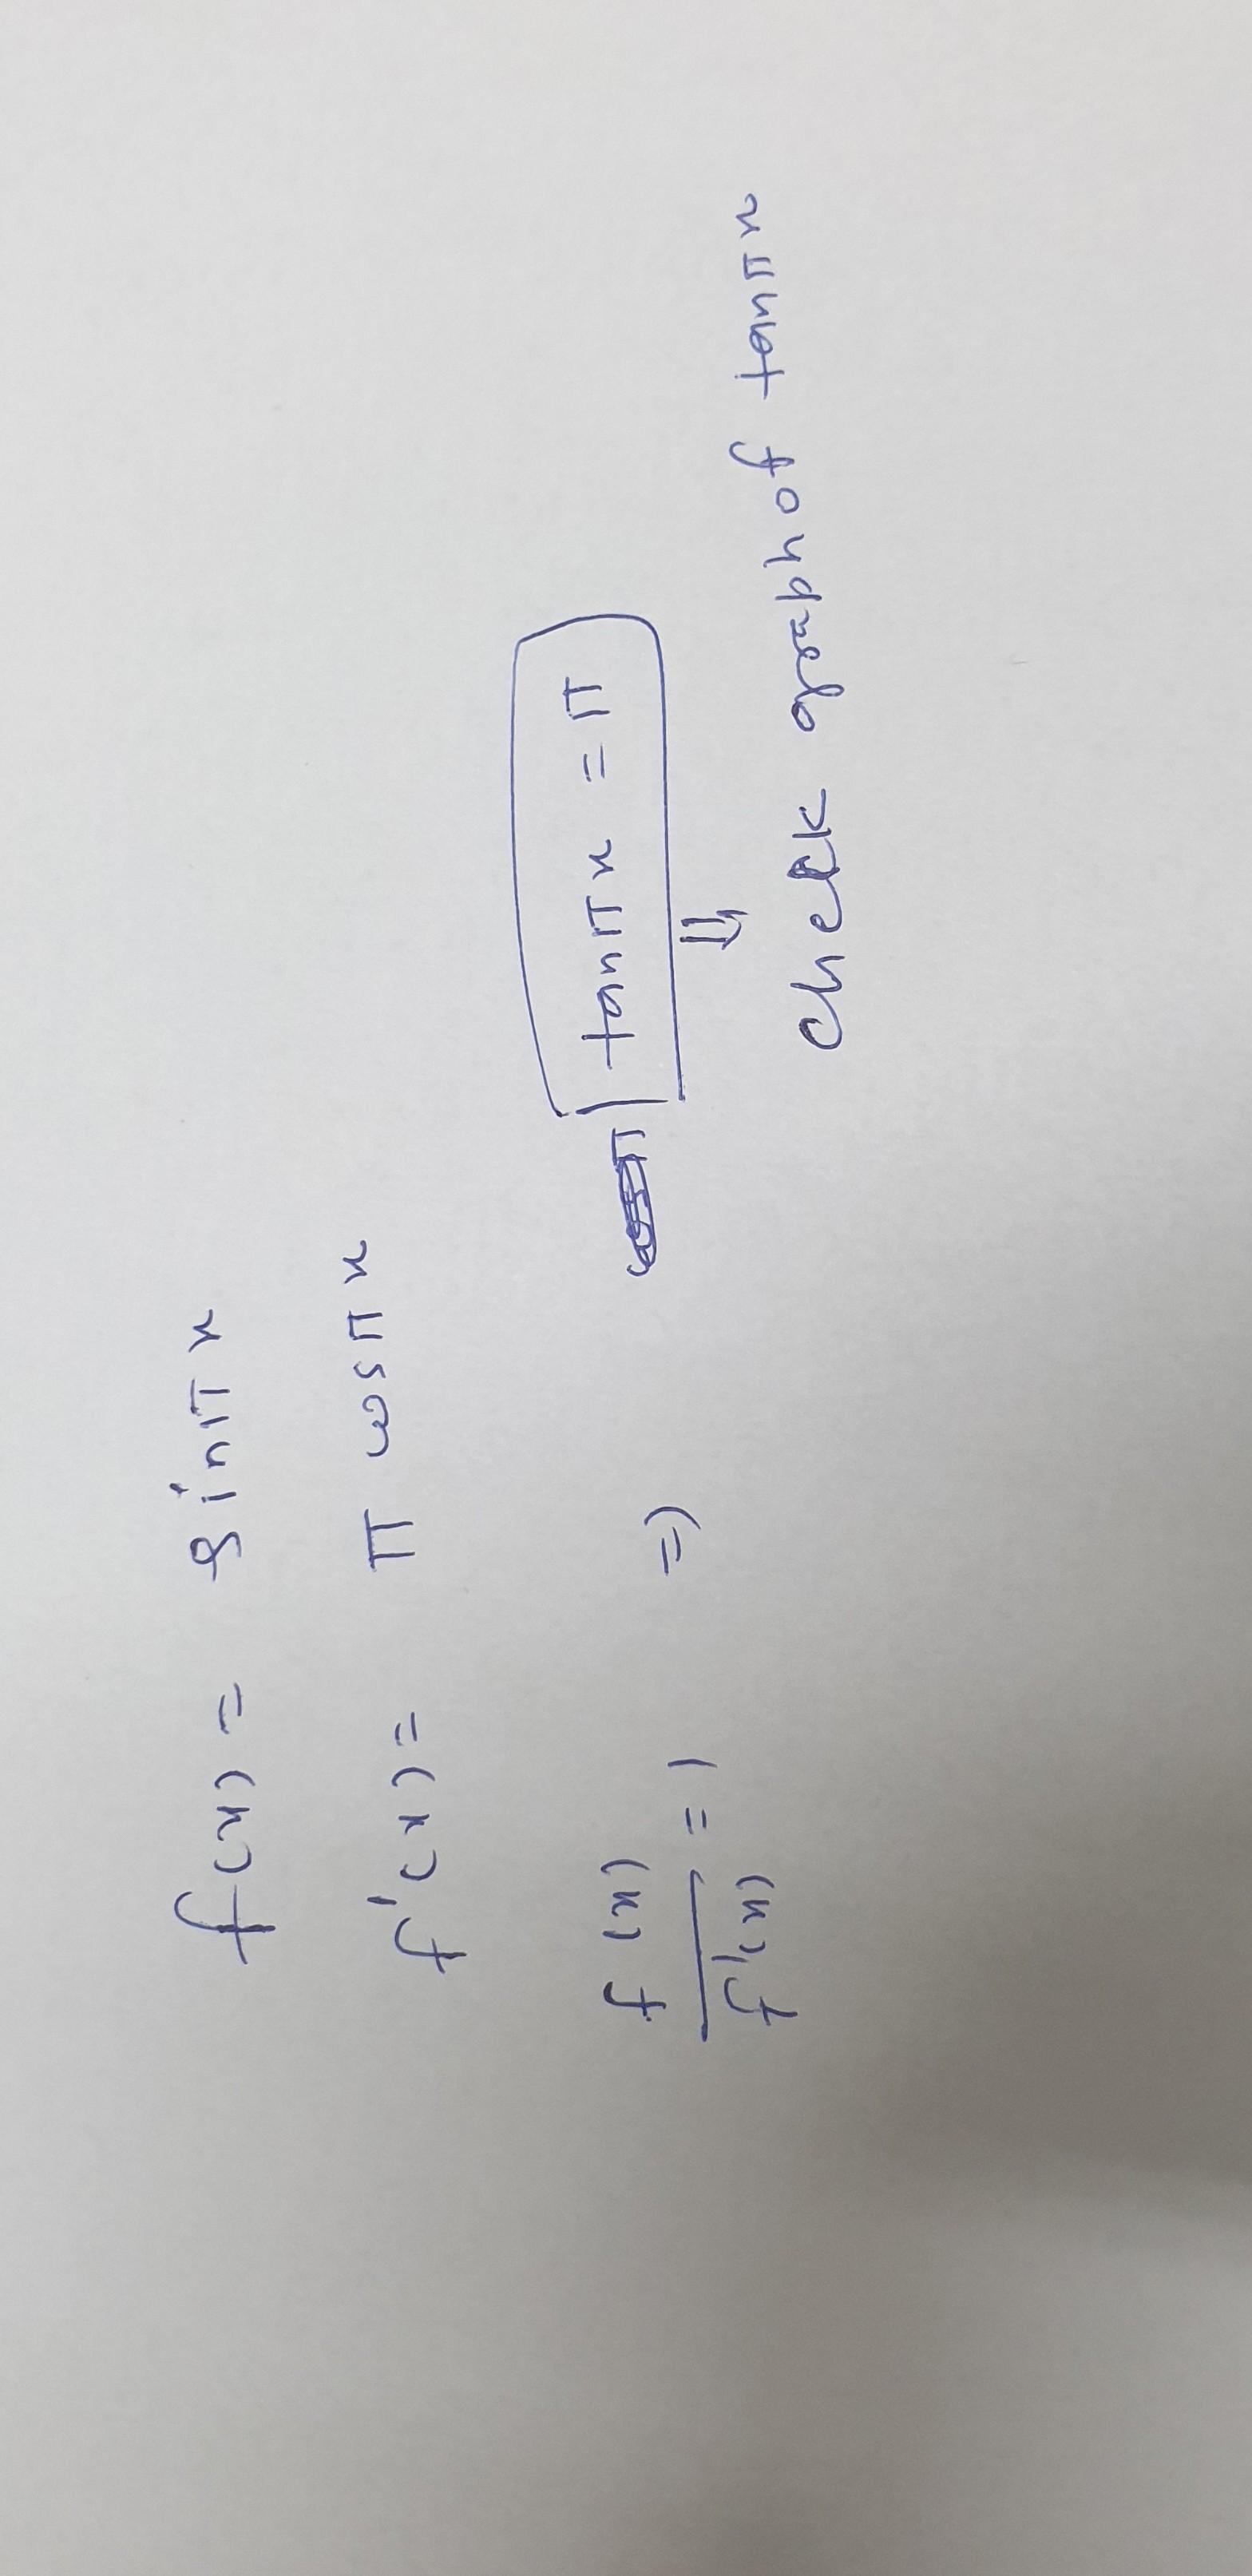 f(x) = sinπx
f'(x) = π cosπx
f(x)/f'(x) = 1 => tanπx = π
⇓
Check graph of tanπx